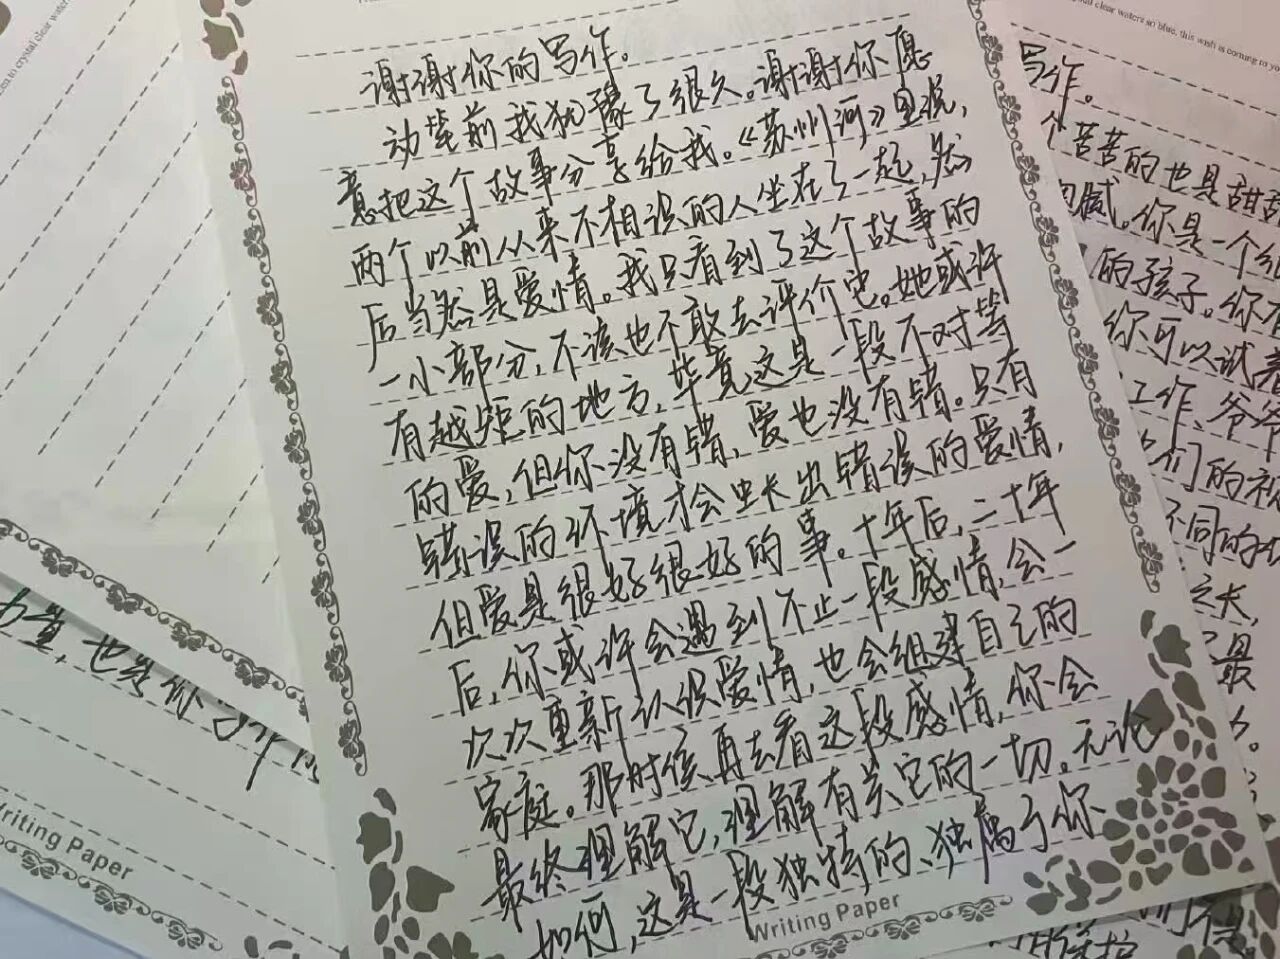 谢谢你的写作。
动笔前我犹豫了很久。谢谢你愿
意把这个故事分享给我。《苏州河》里说，
两个以前从来不相识的人坐在了一起，然
后当然是爱情。我只看到了这个故事的
一小部分，不该也不敢去评价它。她或许
有越矩的地方，毕竟这是一段不对等
的爱，但你没有错，爱也没有错。只有
错误的环境才会生长出错误的爱情，
但爱是很好很好的事。十年后，二十年
后，你或许会遇到不止一段感情，会一
次次重新认识爱情，也会组建自己的
家庭。那时候再去看这段感情，你会
最终理解它，理解有关它的一切。无论
如何，这是一段独特的、独属于你
Writing Paper
写作。
个苦苦的也是甜甜
你是一个
的孩子。你
你可以试
工作、爷爷
们的
不同的
之长，
最
也
Writing Paper